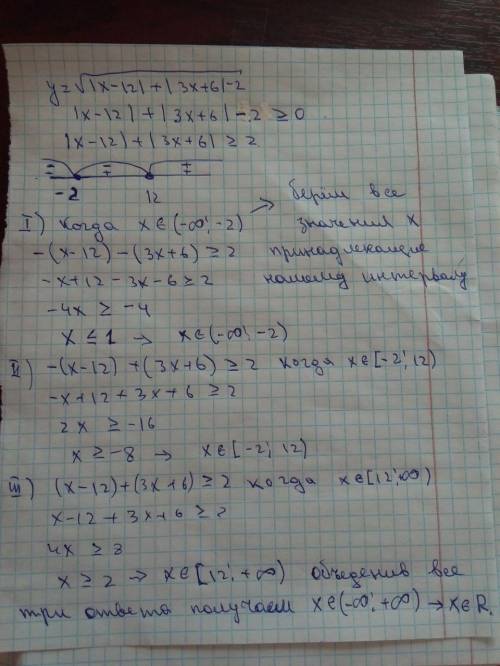 y=√|x-12|+|3x+6|-2
|x-12|+|3x+6|-2 ≥0
|x-12|+|3x+6| ≥ 2
-2 12
I) когда x∈(-∞; -2) → берём все
значения x
-(x-12) - (3x+6) ≥2 принадлежащие
-x+12-3x-6≥2 нашему интервалу
-4x ≥ -4
x ≤ 1 → x∈(-∞; -2)
II) -(x-12) +(3x+6) ≥2 когда x∈[-2; 12)
-x+12+3x+6 ≥2
2x ≥ -16
x ≥ -8 → x∈[-2; 12)
III) (x-12)+(3x+6) ≥2 когда x∈[12; ∞)
x-12+3x+6 ≥2
4x ≥ 8
x ≥ 2 → x∈[12; +∞) объеденив все
три ответа получаем x∈(-∞; +∞) → x∈R.